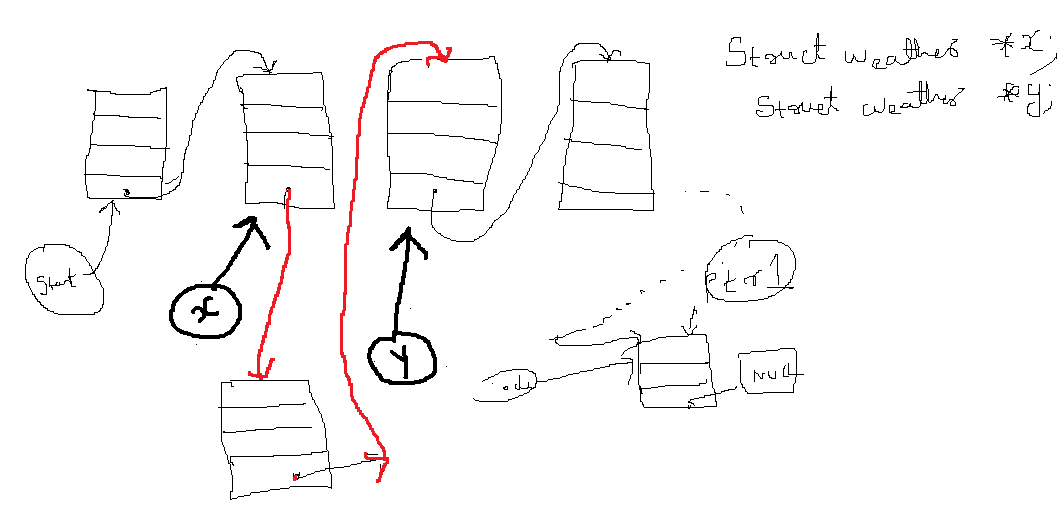 Struct weather *x;
Struct weather *y;
Start
x
y
ptr1
NULL